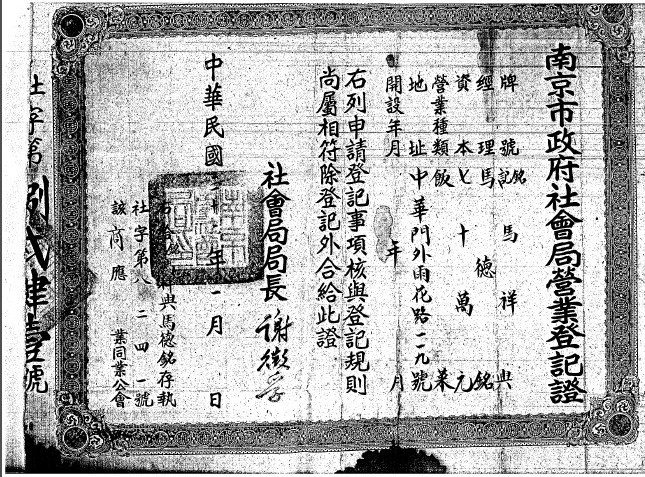 南京市政府社會局營業登記證
牌號 馬祥興銘記
經理 馬德銘
資本 七十萬元
營業種類 飯菜
地址 中華門外雨花路一二九號
開設年月 年 月
右列申請登記事項核與登記規則
尚屬相符除登記外合給此證
社會局局長 謝徵孚
中華民國 年 月 日
與馬德銘存執
社字第八二四一號
該商應 業同業公會
社字第捌貳肆壹號